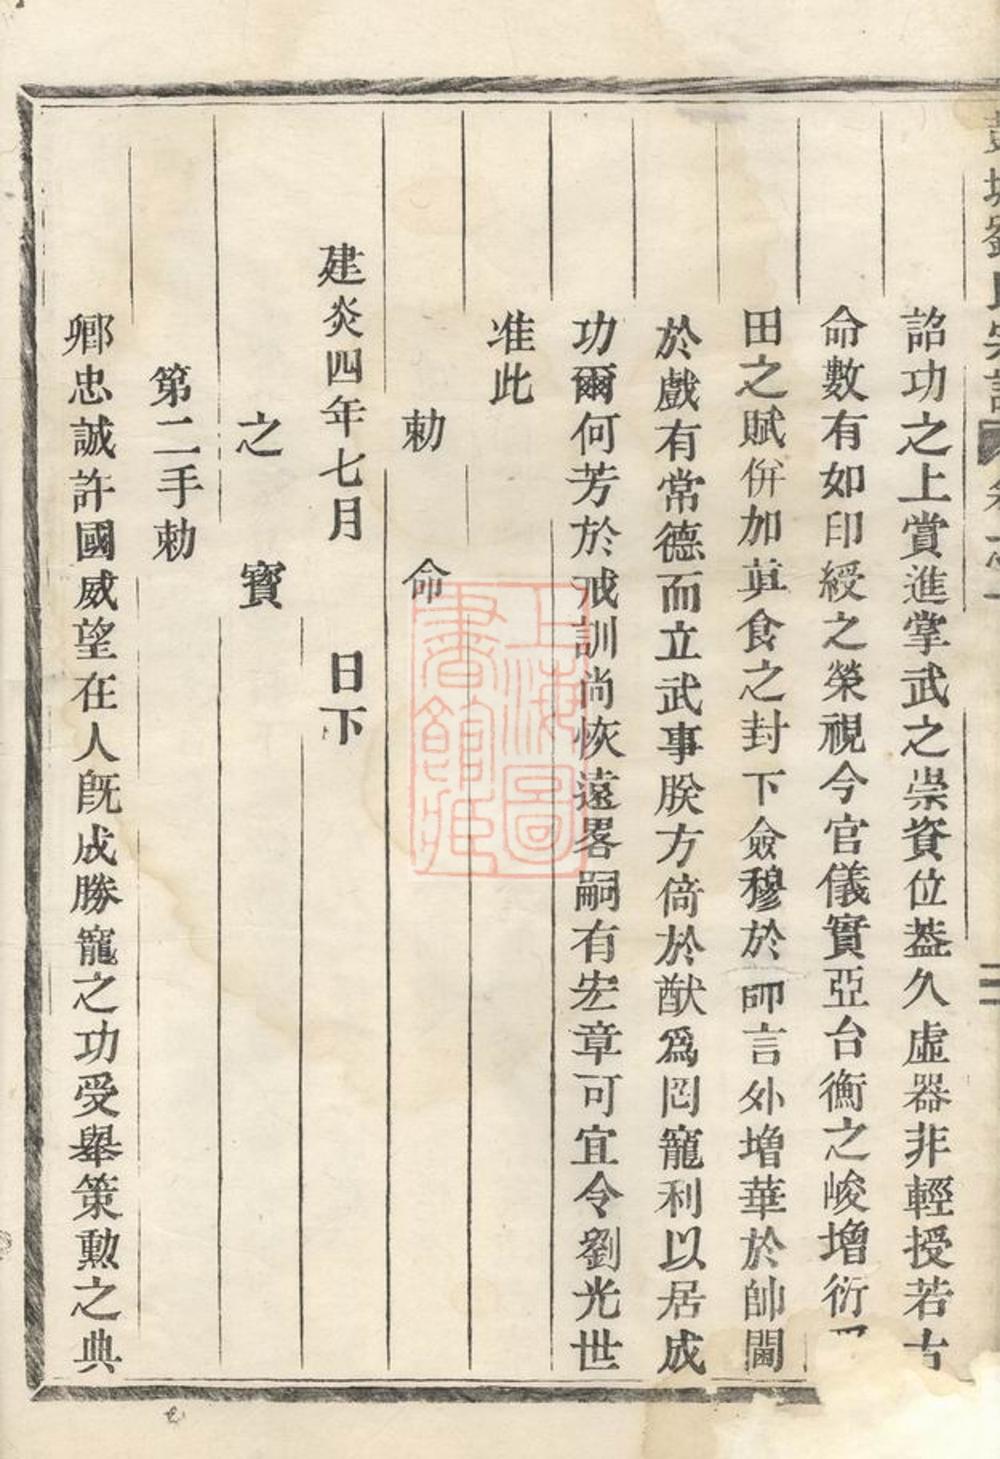 彭城劉氏宗譜 卷之一
詔功之上賞進掌武之崇資位葢久虛器非輕授若古
命數有如印綬之榮視今官儀實亞台衡之峻增衍
田之賦倂加眞食之封下僉穆於師言外增華於帥閫
於戲有常德而立武事朕方倚於猷爲罔寵利以居成
功爾何芳於戒訓尚恢遠畧嗣有宏章可宜令劉光世
准此
勅命
建炎四年七月 日下
之寳
第二手勅
卿忠誠許國威望在人旣成勝寵之功受舉策勲之典
上海圖書館藏